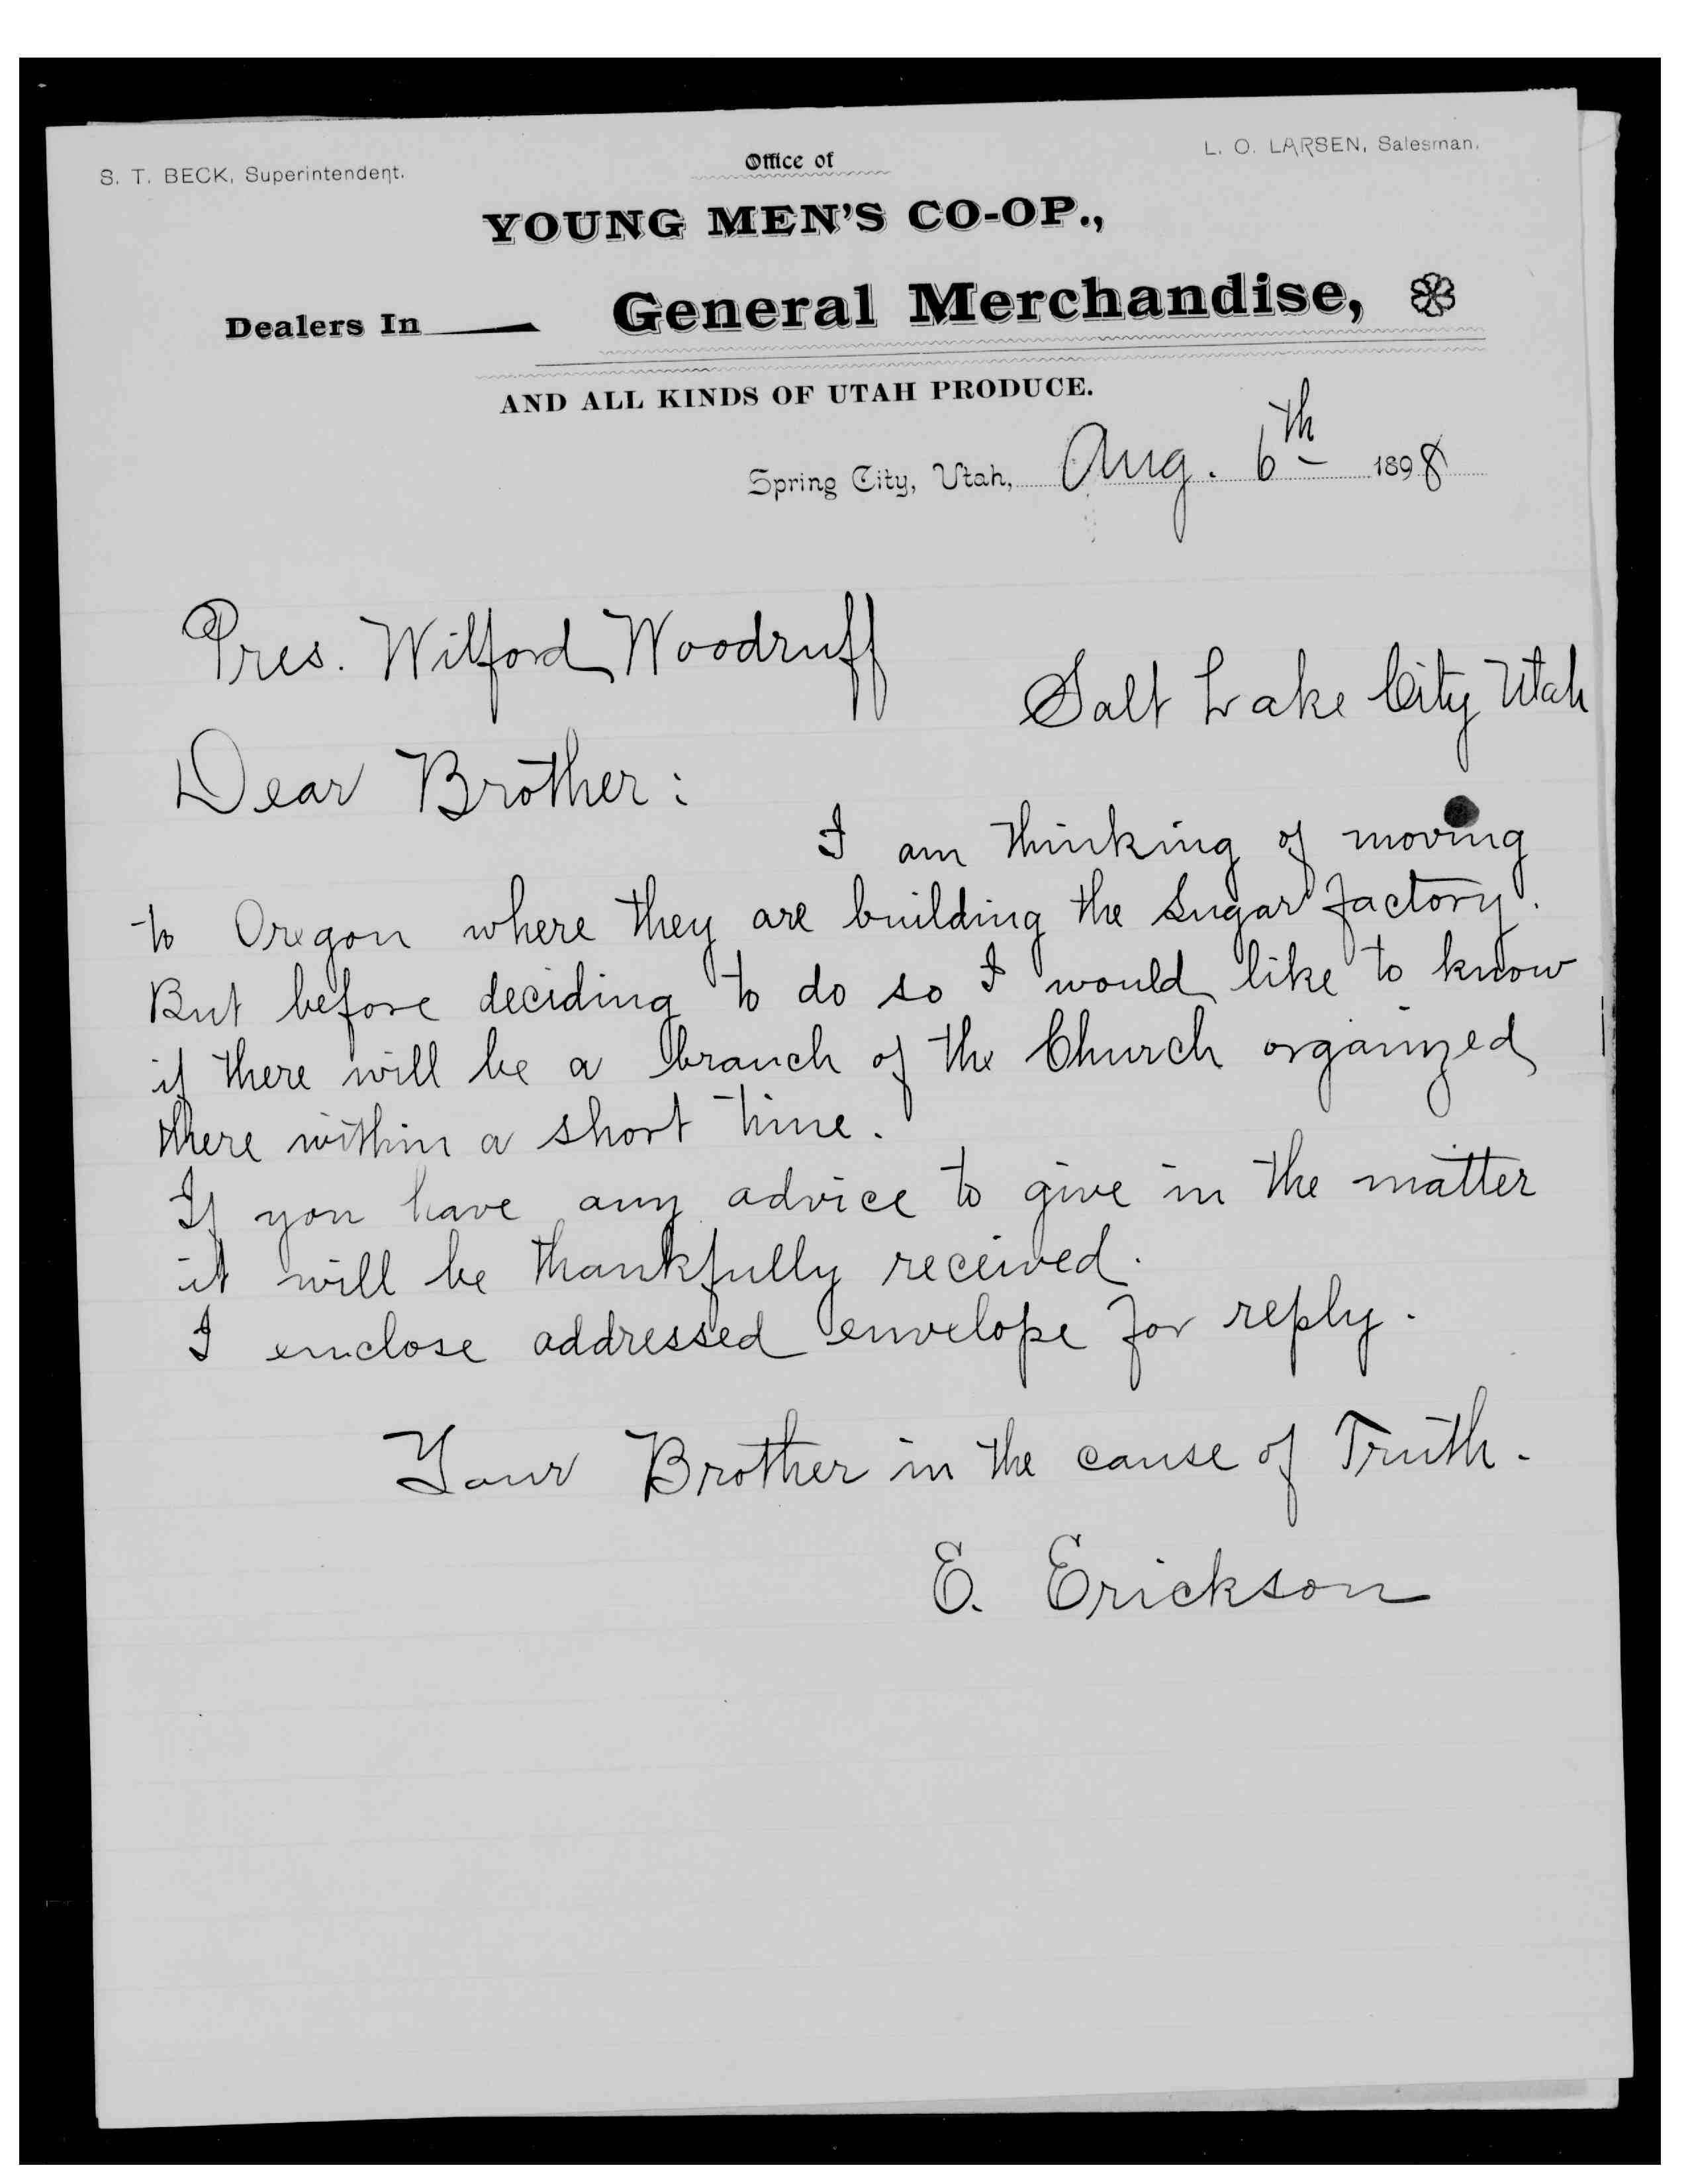 S. T. BECK, Superintendent.
Office of
L. O. LARSEN, Salesman.
YOUNG MEN'S CO-OP.,
Dealers In General Merchandise,
AND ALL KINDS OF UTAH PRODUCE.
Spring City, Utah, Aug. 6th 1898
Pres. Wilford Woodruff
Salt Lake City Utah
Dear Brother:
I am thinking of moving
to Oregon where they are building the Sugar factory.
But before deciding to do so I would like to know
if there will be a branch of the Church organized
there within a short time.
If you have any advice to give in the matter
it will be thankfully received.
I enclose addressed envelope for reply.
Your Brother in the cause of Truth.
E. Erickson